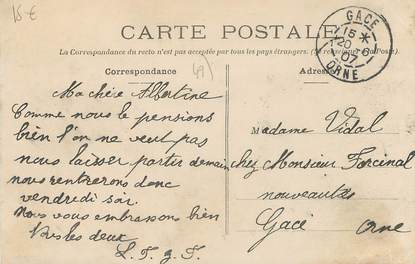 15 €
CARTE POSTALE
La Correspondance du recto n'est pas acceptée par tous les pays étrangers. (Se renseigner à la Poste)
Correspondance
49
Adresse
GACÉ
15 *
20 -6
07
ORNE
Ma chère Albertine
Comme nous le pensions
bien l'on ne veut pas
nous laisser partir demain
nous rentrerons donc
vendredi soir.
Nous vous embrassons bien
tous les deux.
Madame Vidal
chez Monsieur Forcinal
nouveautés
Gacé Orne